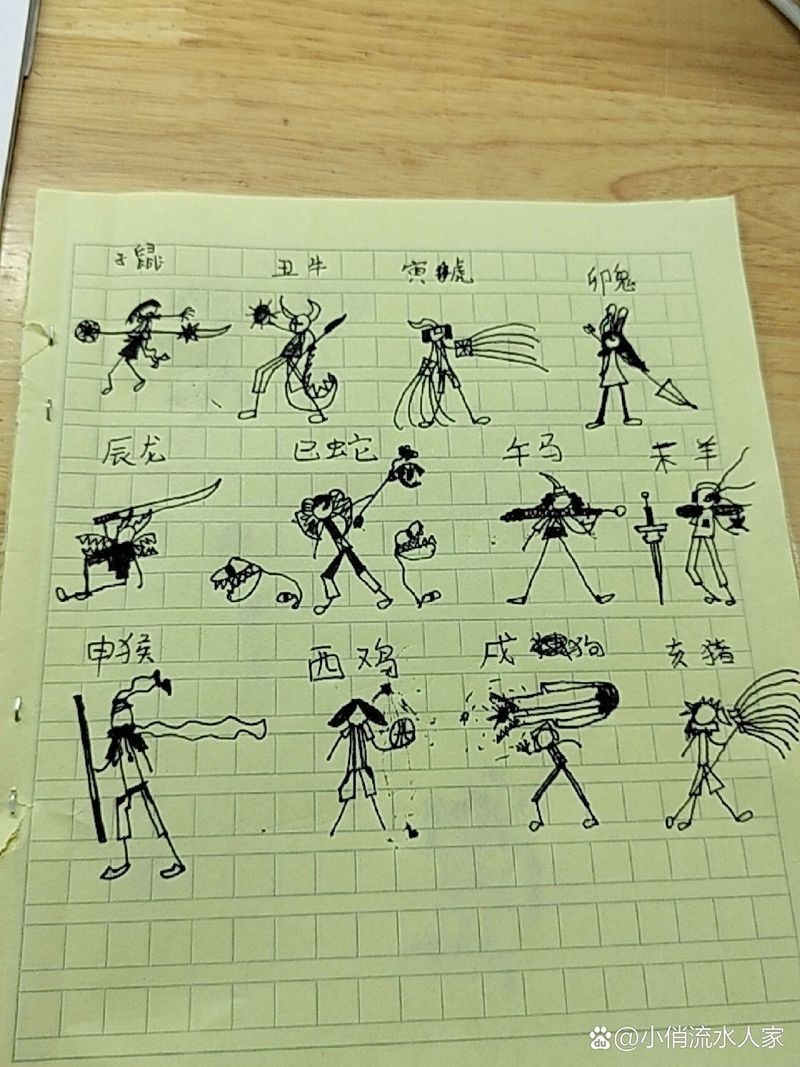 子鼠 丑牛 寅虎 卯兔
辰龙 巳蛇 午马 未羊
申猴 西鸡 戌狗 亥猪
du @小俏流水人家